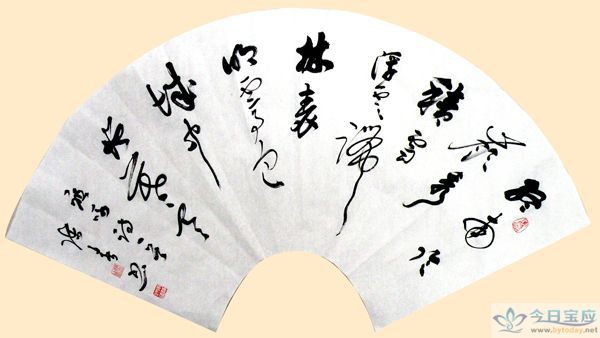 终南
阴岭秀
積雪
浮云端
林表
明霁色
城中
增暮寒
今日宝应
www.bytoday.net